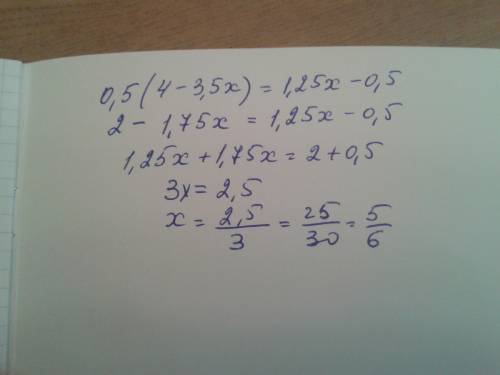 0,5(4-3,5x)=1,25x-0,5
2-1,75x=1,25x-0,5
1,25x+1,75x=2+0,5
3x=2,5
x=2,5/3=25/30=5/6